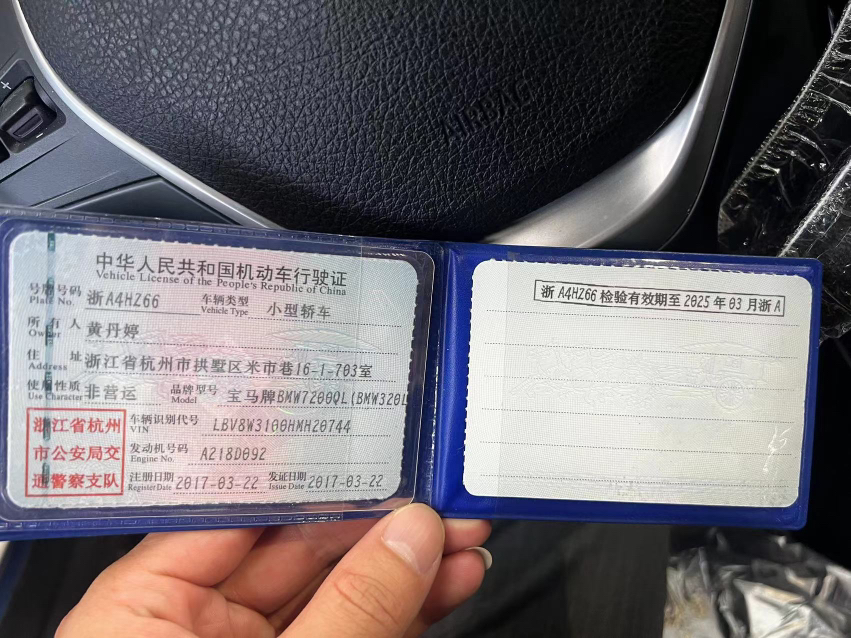 AIRBAG
中华人民共和国机动车行驶证
Vehicle License of the People's Republic of China
号牌号码 Plate No. 浙A4HZ66 车辆类型 Vehicle Type 小型轿车
所有人 Owner 黄丹婷
住址 Address 浙江省杭州市拱墅区米市巷16-1-703室
使用性质 Use Character 非营运 品牌型号 Model 宝马牌BMW7200QL(BMW320L
浙江省杭州
市公安局交
通警察支队
车辆识别代号 VIN LBV8W3100HMH20744
发动机号码 Engine No. A218D09Z
注册日期 Register Date 2017-03-22 发证日期 Issue Date 2017-03-22
浙A4HZ66检验有效期至2025年03月浙A